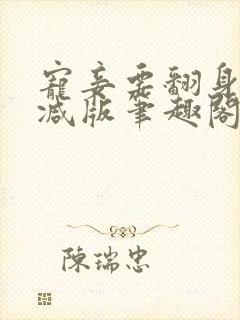 寵妾要翻身
減版筆趣閣
陳瑞忠